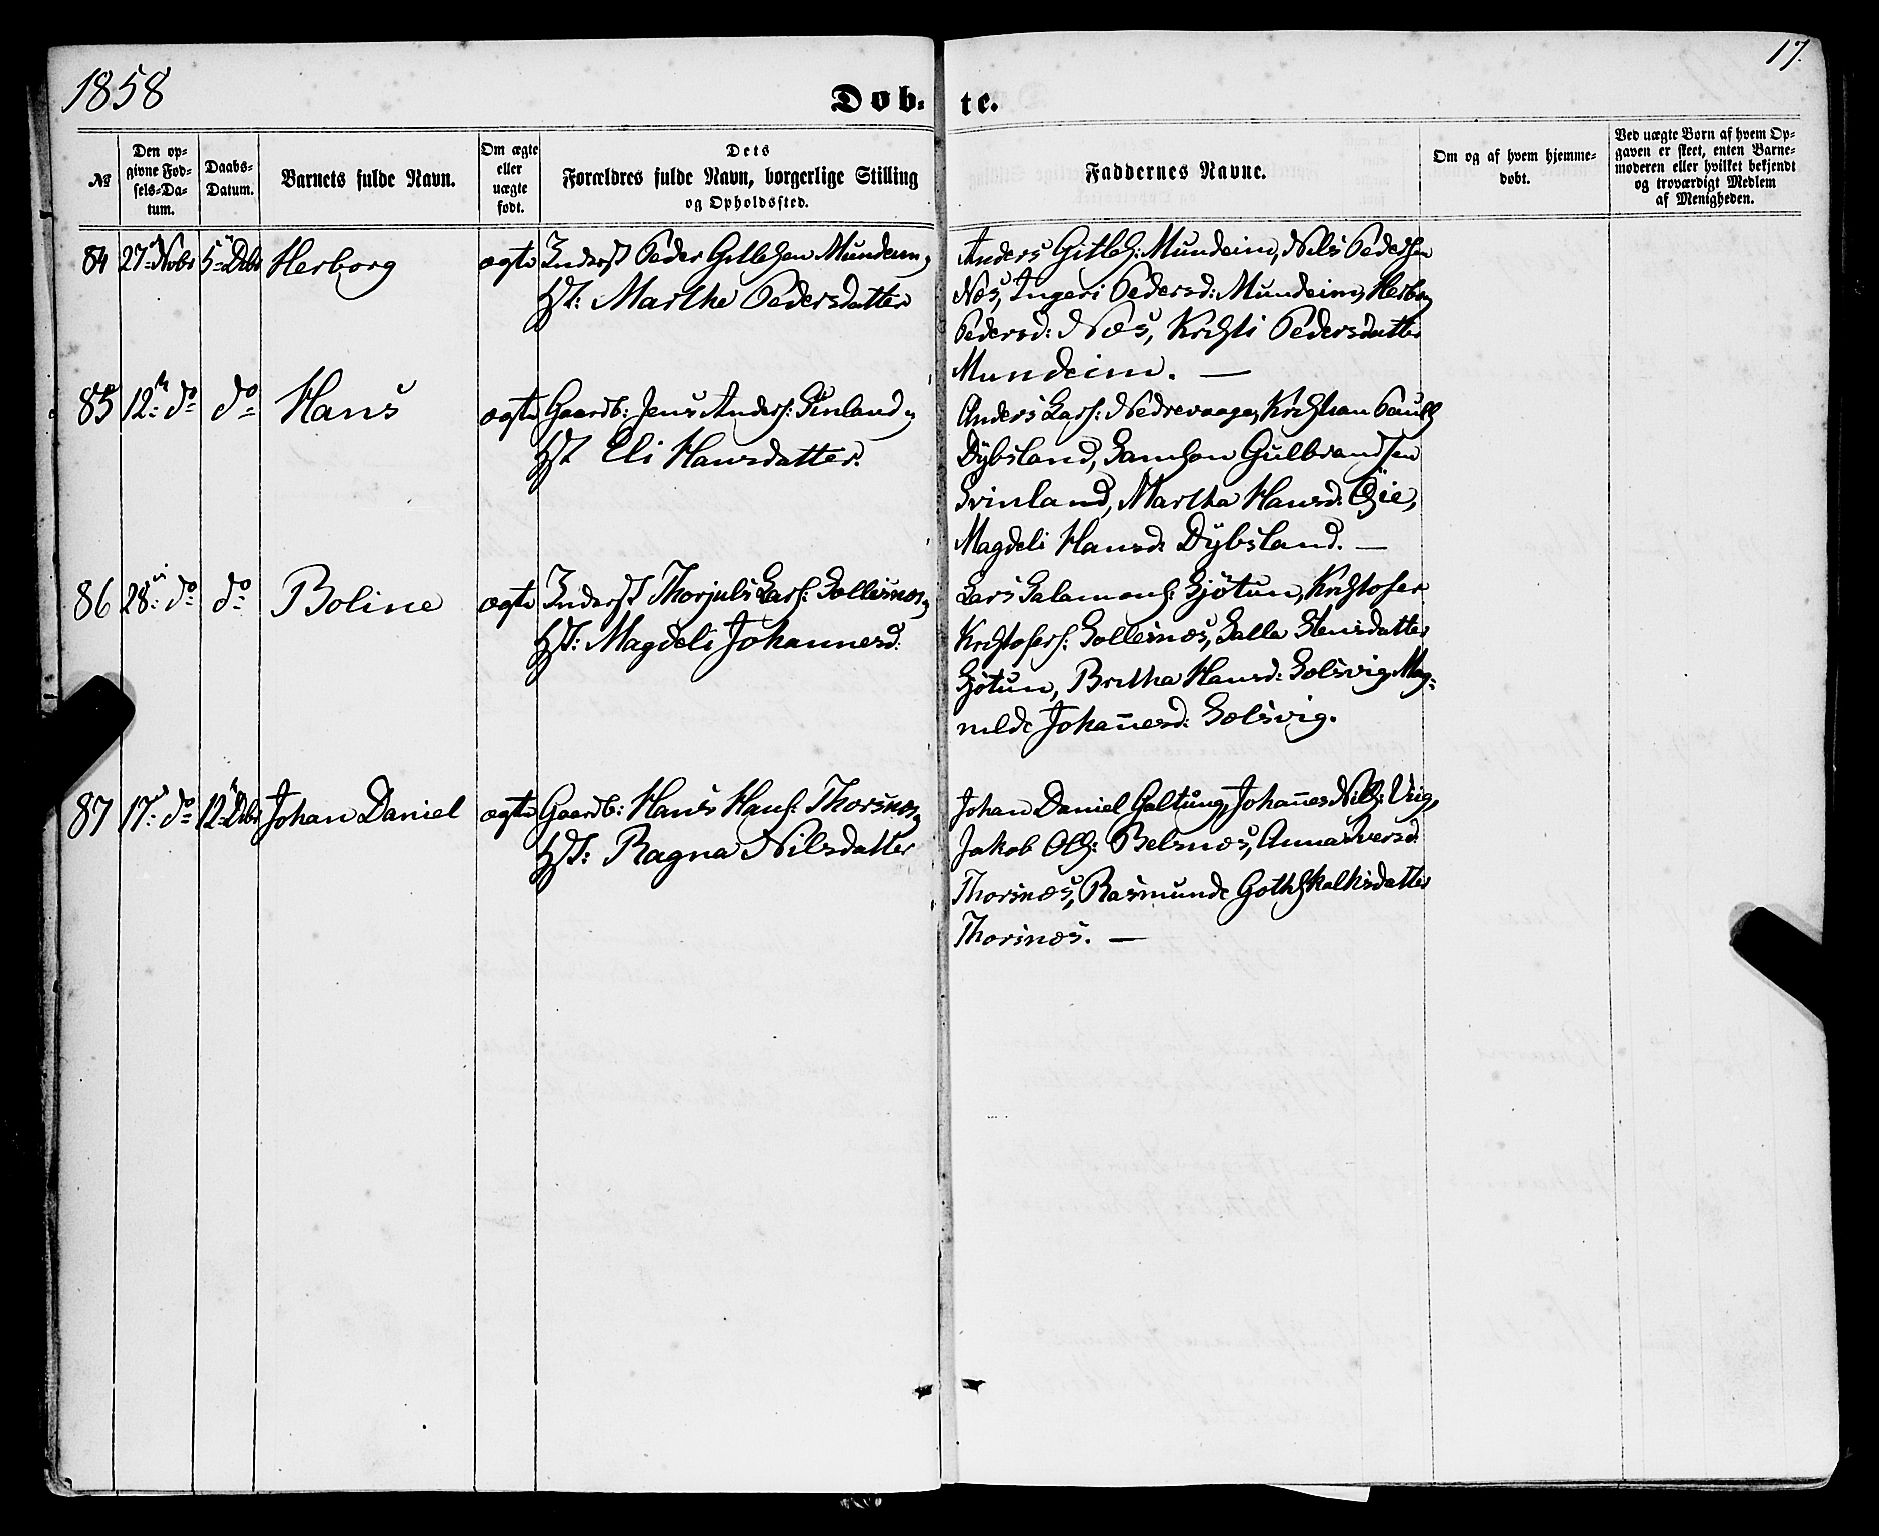 1858
17.
Døb-te.
№
Den opgivne Fødsels-Datum.
Daabs-Datum.
Barnets fulde Navn.
Om ægte eller uægte født.
Dets Forældres fulde Navn, borgerlige Stilling og Opholdssted.
Faddernes Navne.
Om og af hvem hjemmedøbt.
Ved uægte Børn af hvem Opgaven er skeet, enten Barnemoderen eller hvilket bekjendt og troværdigt Medlem af Menigheden.
84 27 Novbr 5 Dcbr Herborg ægte Inderst Peder Gitlesen Mundeim,
Hst: Marthe Pedersdatter
Anders Gitles: Mundeim, Nils Pedersen
Næs, Ingeri Pedersd: Mundeim, Herborg
Pedersd: Næs, Kristi Pedersdatter
Mundeim. —
85 12 do do Hans ægte Gaardb: Jens Anders:
Hst Eli Hansdatter.
Anders Lars: Nedrevaage, Kristian Pauls
Dybsland, Samson Gulbrandsen
Svinland, Martha Hansd: Øie,
Magdeli Hansd: Dybsland. —
86 28 do do Boline ægte Inderst Thorjuls Lars: Sollesnæs,
Hst: Magdeli Johannesd:
Lars Salamons: Gjøtun, Kristofer
Kristofers: Sollesnæs, Salle Stensdatter
Gjøtun, Brithe Hansd: Solsvig, Mag-
nilde Johannesd: Solsvig.
87 17 do 12 Dcbr Johan Daniel ægte Gaardb: Hans Hans: Thorsnæs,
Hst: Ragna Nilsdatter
Johan Daniel Galtung, Johannes Nils: Vig,
Jakob Ols: Belsnæs, Anna Iversd:
Thorsnæs, Rasmunde Gothskalksdatter
Thorsnæs. —